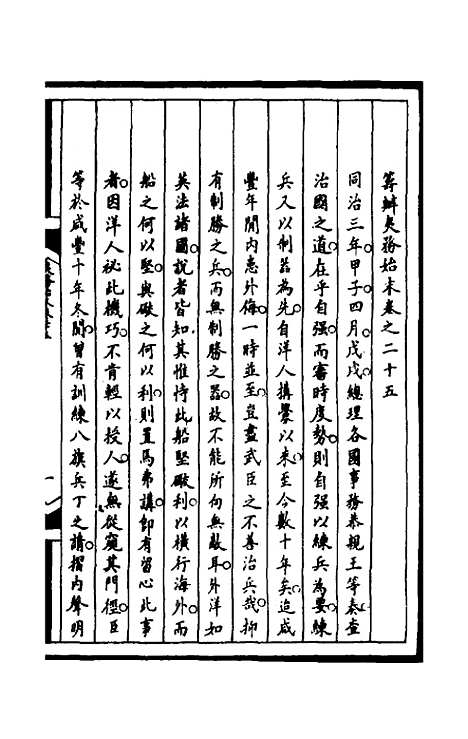 籌辦夷務始末卷之二十五
同治三年甲子四月戊戌總理各國事務恭親王等奏查
治國之道在乎自强而審時度勢則自强以練兵為要練
兵又以制器為先自洋人搆釁以來至今數十年矣迨咸
豐年間內患外侮一時並至豈盡武臣之不善治兵哉抑
有制勝之兵而無制勝之器故不能所向無敵耳外洋如
英法諸國說者皆知其惟恃此船堅礮利以橫行海外而
船之何以堅與礮之何以利則置焉弗講即有留心此事
者因洋人祕此機巧不肯輕以授人遂無從窺其門徑臣
等於咸豐十年冬間曾有訓練八旗兵丁之請摺內聲明